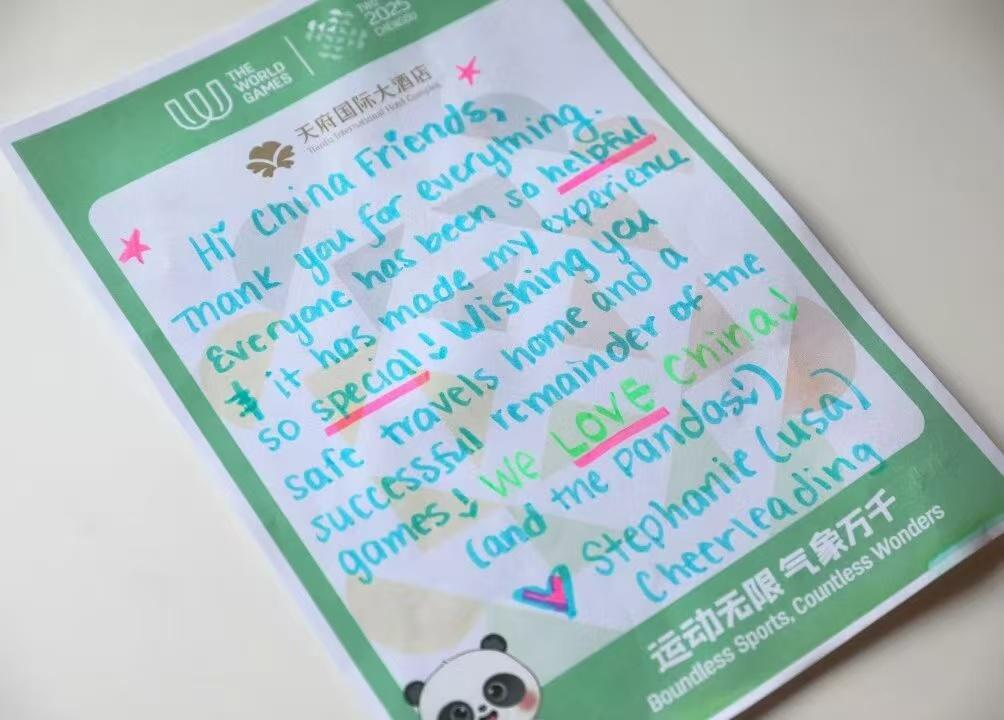 THE
WORLD
GAMES
TWG
2025
CHENGDU
天府国际大酒店
Tianfu International Hotel Complex
Hi China Friends,
Thank you for everything.
Everyone has been so helpful
it has made my experience
so special! Wishing you
safe travels home and a
successful remainder of the
games! We LOVE China!
(and the pandas:)
Stephanie (usa)
Cheerleading
运动无限 气象万千
Boundless Sports, Countless Wonders